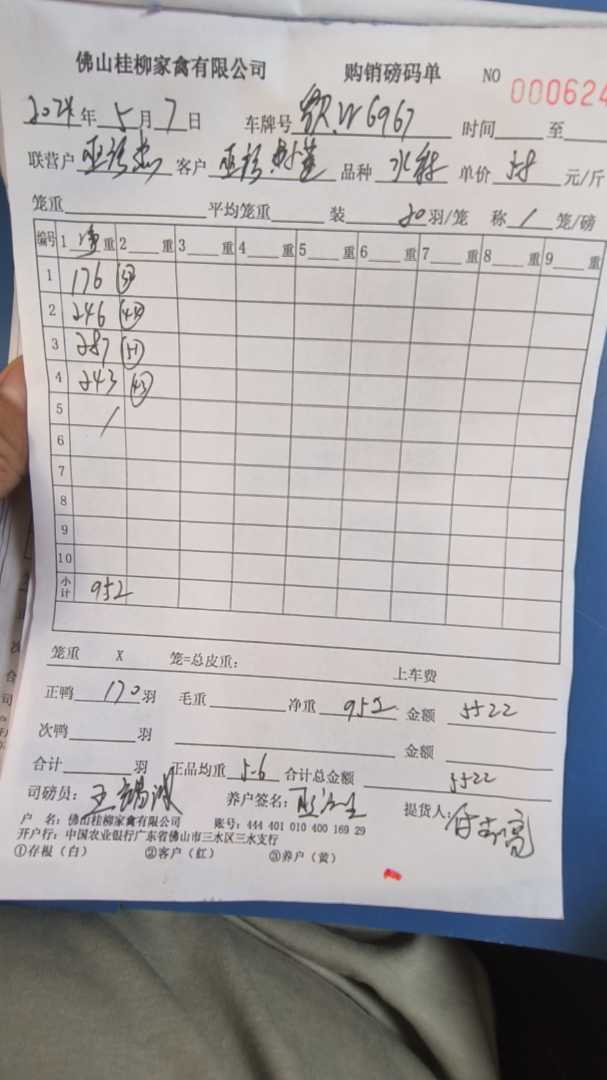 佛山桂柳家禽有限公司 购销磅码单 NO 000624
2024年5月7日 车牌号 W6967 时间 至
联营户 客户 品种 水鸭 单价 5.8 元/斤
笼重 平均笼重 装 20羽/笼 称 1 笼/磅
编号 1 净 重 2 重 3 重 4 重 5 重 6 重 7 重 8 重 9 重
1 176
2 246 44
3 287 51
4 243
5
6
7
8
9
10
小计 952
笼重 X 笼=总皮重: 上车费
正鸭 170 羽 毛重 净重 952 金额 5522
次鸭 羽 金额
合计 羽 正品均重 5.6 合计总金额 5522
司磅员: 养户签名: 提货人:
户 名: 佛山桂柳家禽有限公司 账号: 444 401 010 400 169 29
开户行: 中国农业银行广东省佛山市三水区三水支行
①存根(白) ②客户(红) ③养户(黄)